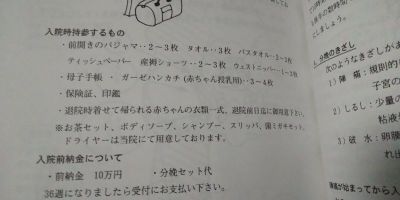 入院時持参するもの
・前開きのパジャマ‥2〜3枚 タオル‥3枚 バスタオル‥2〜3枚
ティッシュペーパー 産褥ショーツ‥2〜3枚 ウェストニッパー‥1〜
・母子手帳 ・ガーゼハンカチ(赤ちゃん授乳用)‥3〜4枚
・保険証、印鑑
・退院時着せて帰られる赤ちゃんの衣類一式、退院前日迄に御用意下さい。
※お茶セット、ボディソープ、シャンプー、スリッパ、歯ミガキセット、
ドライヤーは当院にて用意しております。
入院前納金について
・前納金 10万円 ・分娩セット代
36週になりましたら受付にお支払い下さい。
しましょう。
次のようなきざしがあ
1) 陣痛:規則的
子宮の
2) しるし:少量の
粘液
3) 破水:卵膜
れ出
が始まってから入